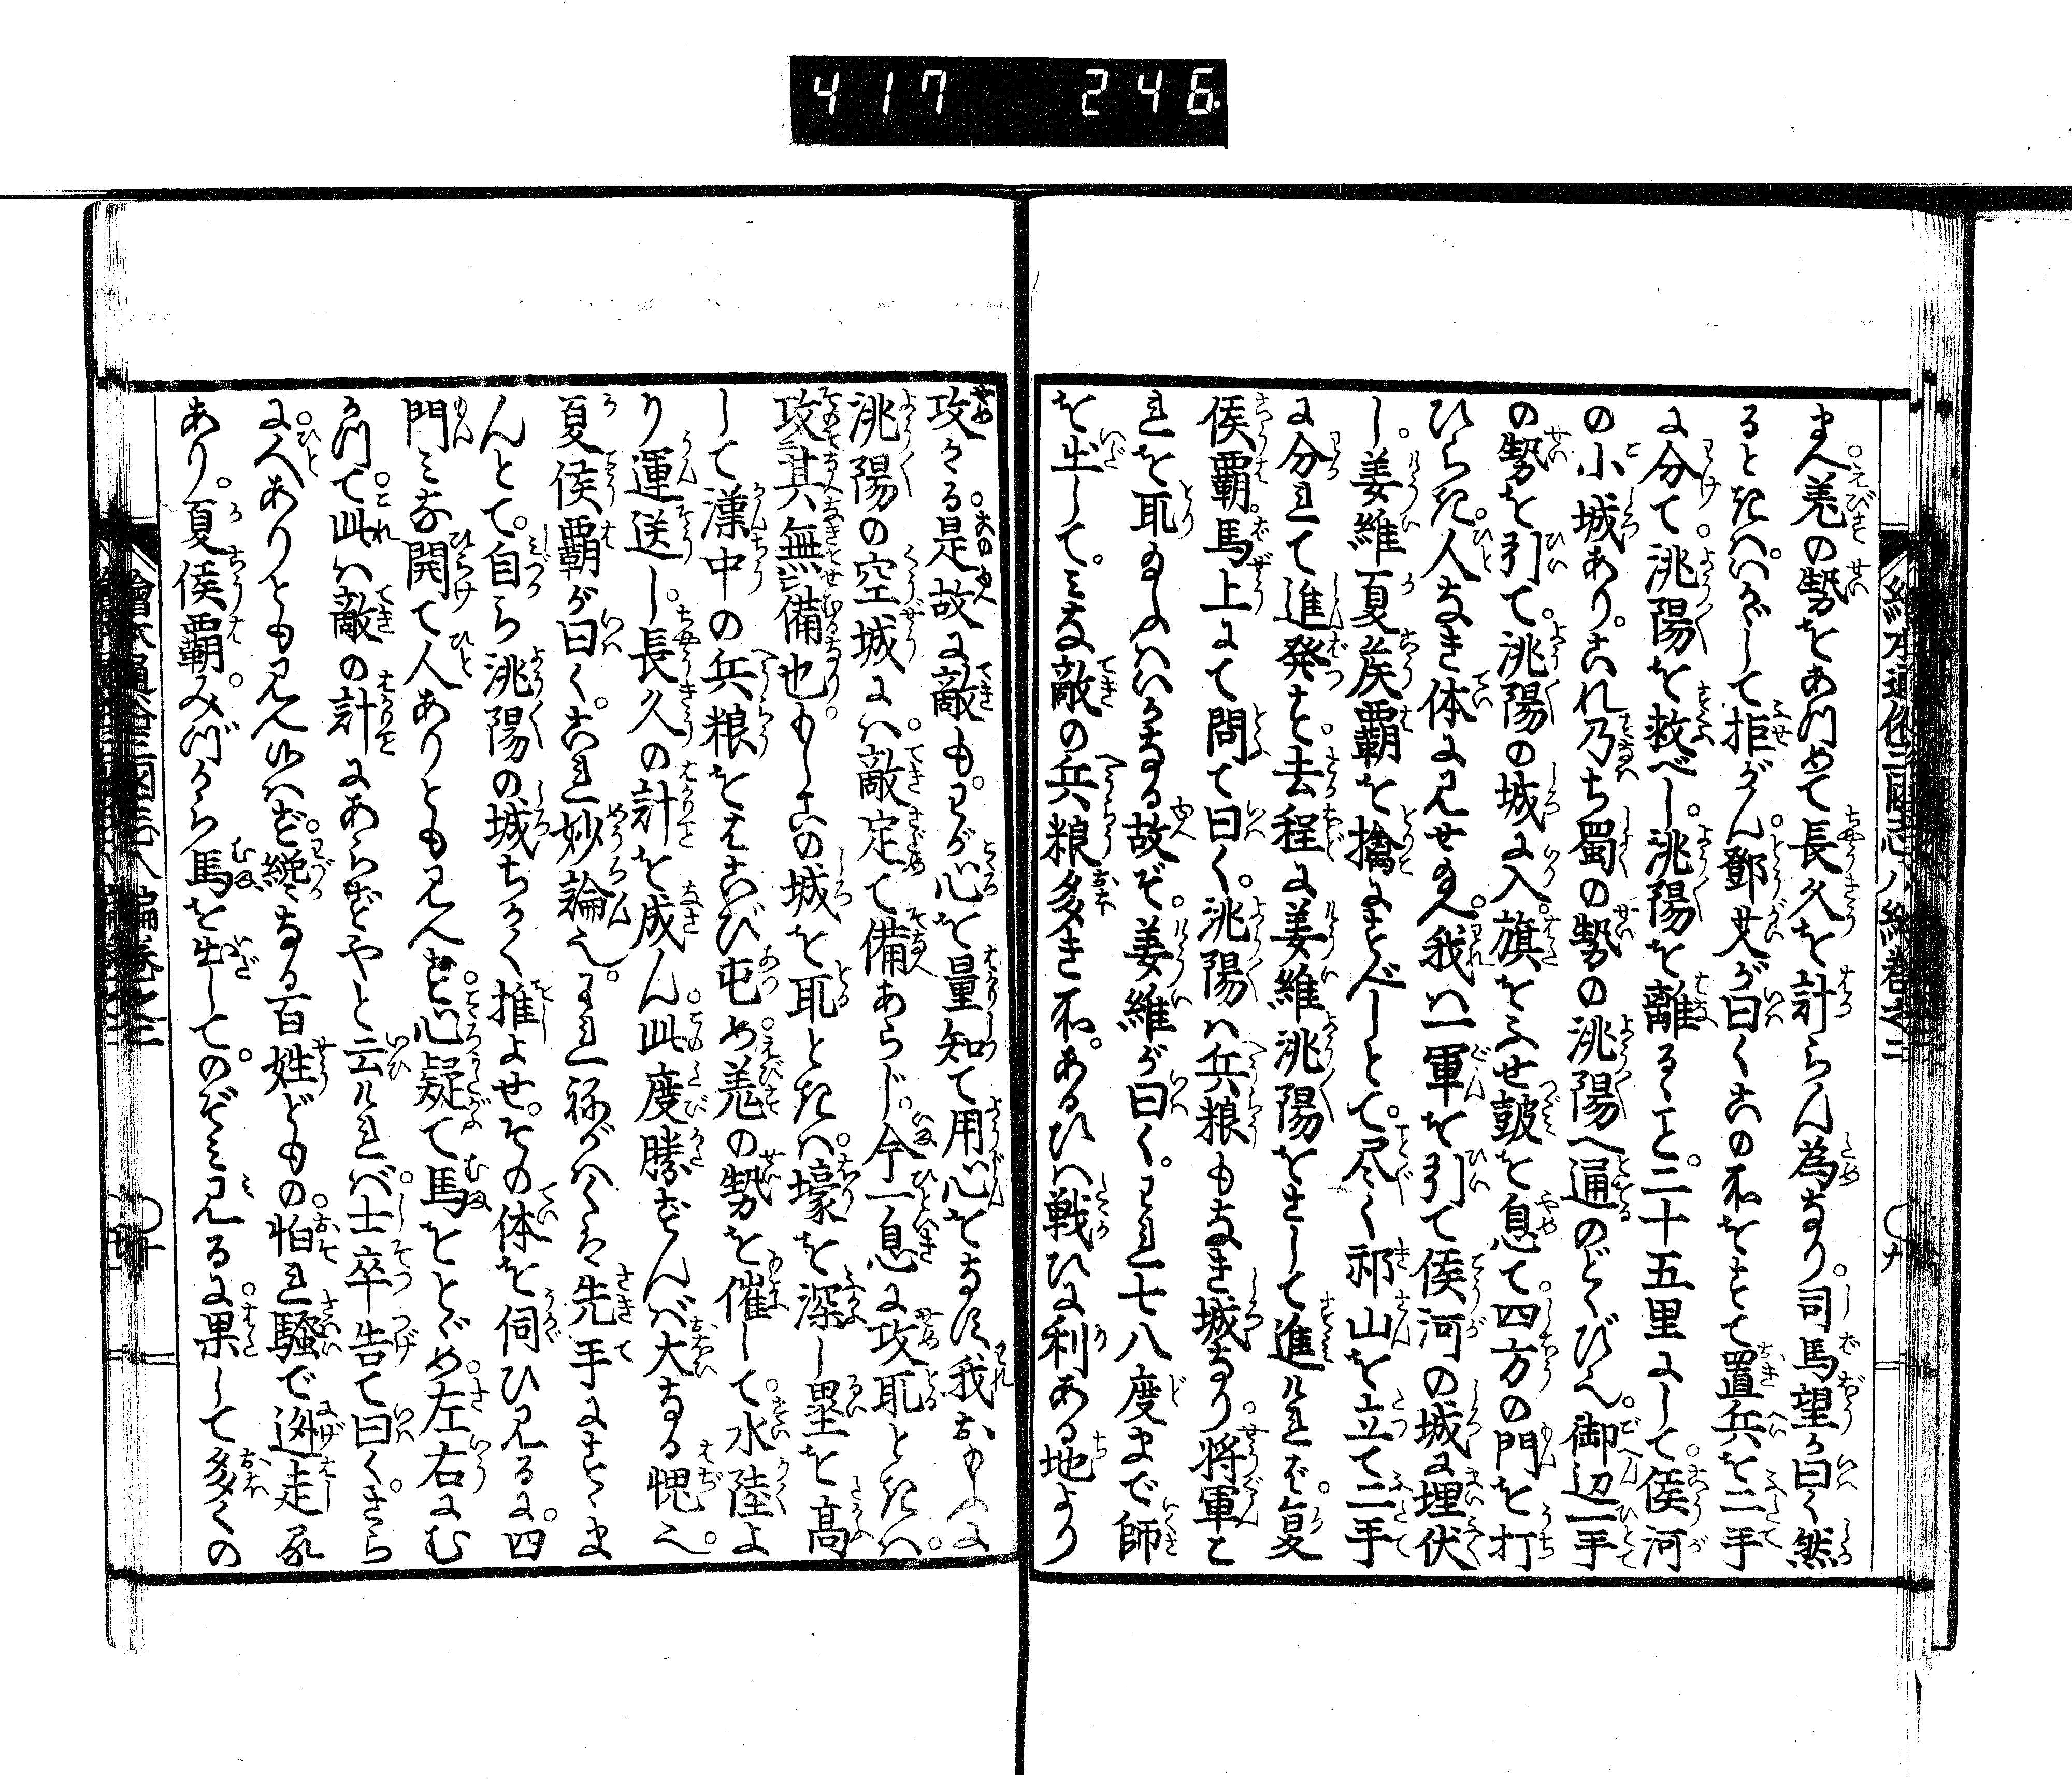 417 246
まへ羗の勢をあつめて長久を計らん為なり。司馬望が曰く然
るときハ。いかゞして拒がん。鄧艾が曰く此の所をすて置兵を二手
に分て。洮陽を救べし。洮陽を離るゝと。二十五里にして。侯河
の小城あり。これ乃ち蜀の勢の洮陽へ通のどくび也。御辺一手
の勢を引て。洮陽の城に入。旗をふせ皷を息て。四方の門を打
ひらき。人なき体に見せ給へ。我ハ一軍を引て侯河の城に埋伏
し。姜維夏侯覇を擒にすべしとて。尽く祁山を立て二手
に分れて進発す。去程に姜維洮陽をさして進けれバ。夏
侯覇。馬上にて問て曰く。洮陽ハ兵粮もなき城なり。将軍こ
れを取給ふハいかなる故ぞ。姜維が曰く。われ七八度まで師
を出して。みな敵の兵粮多き所。あるひハ戦ひに利ある地より
攻ける。是故に敵も。わが心を量知て用心をなす。我おもふに
洮陽の空城にハ。敵定て備あらじ。今一息に攻取ときハ。
攻其無備也。もしこの城を取ときハ。壕を深し塁を高
して漢中の兵粮をはこび屯め。羗の勢を催して。水陸よ
り運送し。長久の計を成ん。此度勝ずんバ大なる愧也。
夏侯覇が曰く。これ妙論也。われねがハくハ先手にすゝま
んとて。自ら洮陽の城ちかく推よせ。その体を伺ひ見るに。四
門みな開て人ありとも見へず。心疑て馬をとゞめ。左右にむ
かつて。此ハ敵の計にあらずやと云けれバ。士卒告て曰く。さら
に。人ありとも見へ候ハず。纔なる百姓どもの。怕れ騒で逃走る
あり。夏侯覇。みづから馬を出して。のぞみ見るに。果して多くの